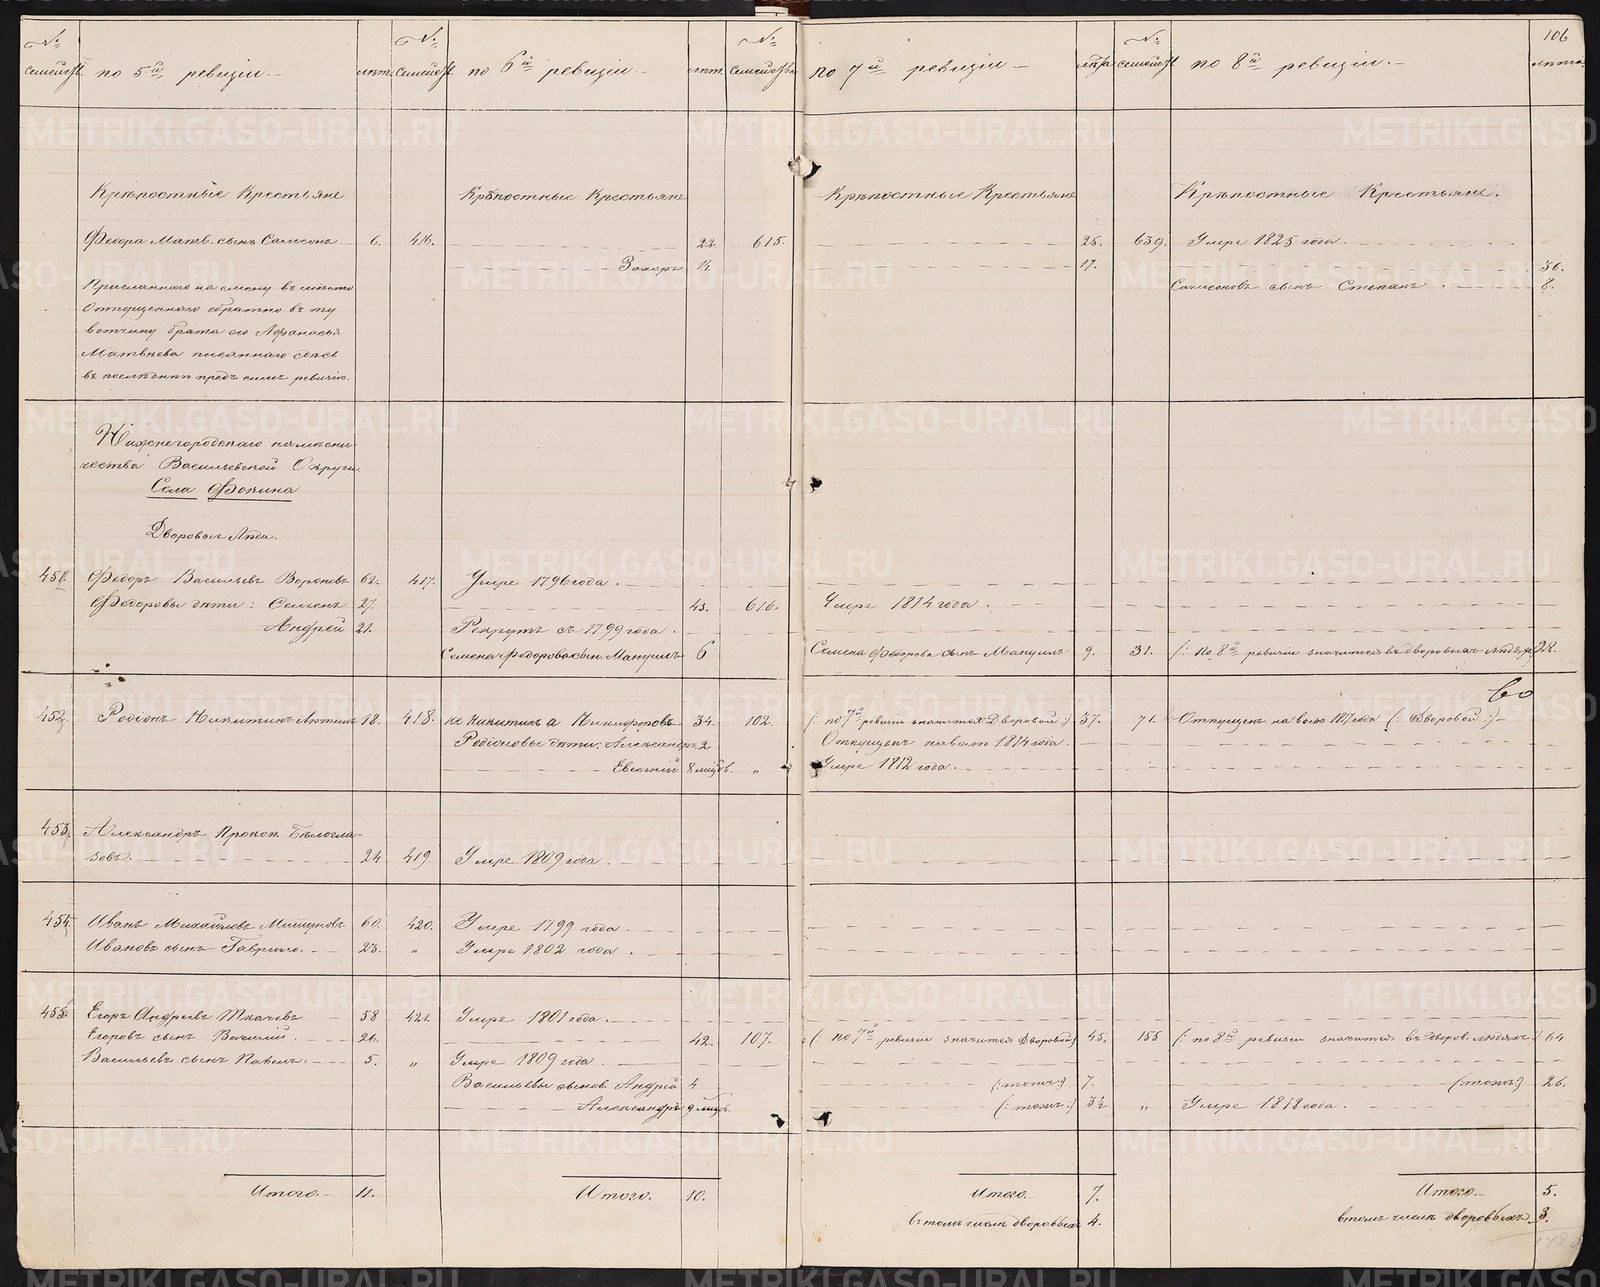 106
№ семейств. по 5й ревизіи.— лѣт. № семейств. по 6й ревизіи.— лѣт. № семейств. по 7й ревизіи — лѣта № семейств по 8й ревизіи.— лѣта
Крѣпостные Крестьяне Крѣпостные Крестьяне Крѣпостные Крестьяне Крѣпостные Крестьяне.
Федора Матв. сынъ Самсонъ. 6. 416. 22. 615. 25. 639. Умре 1825 года.
Захаръ 17. 36.
Присланнаго на смену въ мѣсто Самсоновъ сынъ Степанъ. 8.
Отпущеннаго обратно въ ту
вотчину брата его Афанасья
Матвѣева писаннаго здѣсь
въ последнюю предъ симъ ревизію.
Нижнегородскаго намѣсни-
чества Васильевской Округи.
Села Фокина
Дворовые Люди.
451. Федоръ Васильевъ Вороновъ 62. 417. Умре 1796 года.
Федоровы дѣти: Семенъ 27. 43. 616. Умре 1814 года.
Андрей 21. Рекрутъ съ 1799 года.
Семена Федорова сын: Мануилъ 6 Семена Федорова сынъ Мануилъ 9. 31. (: по 8й ревизіи значится въ дворовыхъ людяхъ 28.
во
452. Родіонъ Никитинъ 18. 418. не Никитинъ а Никифоровъ 34. 102. (: по 7й ревизіи значится Дворовой:) 37. 71. Отпущенъ на волю 1817 года (: Дворовой:)
Родіоновы дѣти: Александръ 2 Отпущенъ на волю 1814 года.
Евсигній 8 мѣсяцъ. „ Умре 1812 года.
453. Александръ Прокоп. Бѣлогла-
зовъ. 24 419 Умре 1809 года.
454. Иванъ Михайловъ 60. 420. Умре 1799 года.
Ивановъ сынъ Гаврило. 23. „ Умре 1802 года.
455. Егоръ Андреевъ Ткачевъ 58 421. Умре 1801 года.
Егоровъ сынъ Василій. 26. 42. 107. (: по 7й ревизіи значится Дворовой:) 45. 155 (: по 8й ревизіи значится въ дворов. людяхъ:) 64
Васильевъ сынъ Павелъ. 5. „ Умре 1809 года.
Васильевы сынов. Андрей 4 (: тожъ:) 7. (: тожъ:) 26.
Александръ 9 мѣсяцъ. (: тожъ:) 3½ „ Умре 1818 года.
Итого. 11. Итого. 10. Итого. 7. Итого. 5.
въ томъ числѣ дворовыхъ 4. въ томъ числѣ дворовыхъ 3.
METRIKI.GASO-URAL.RU